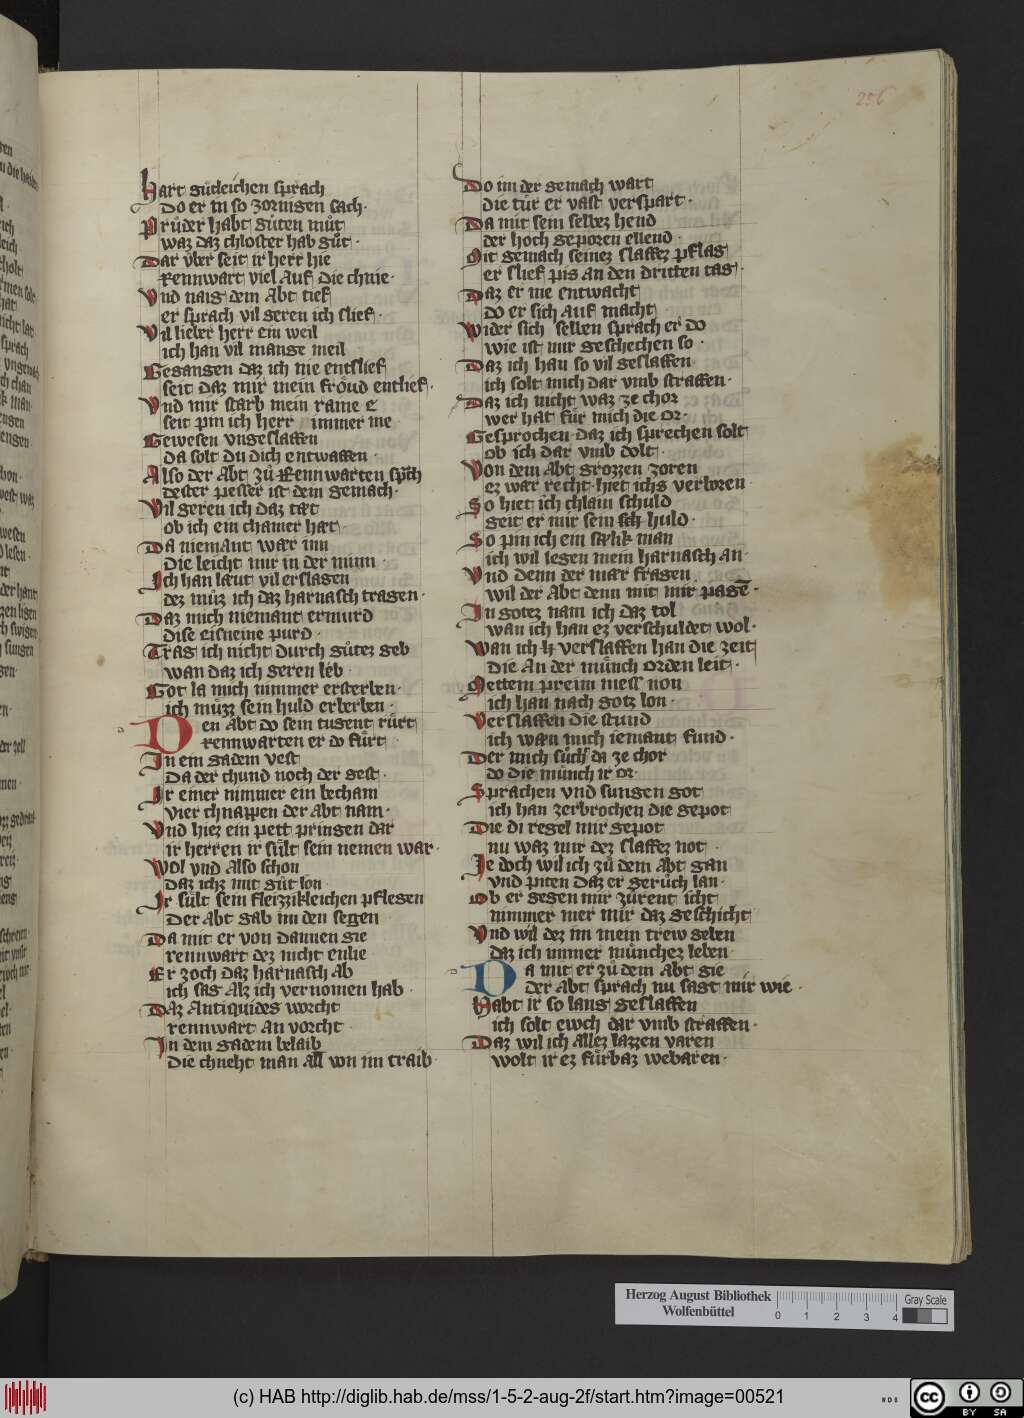 256
Hart gütleichen sprach
Do er in so zornigen sach·
Průder habt gůten můt
waz daz chloster hab gůt·
Dar vber seit ir herr hie
Rennwart viel Auf die chnie·
Vnd naig dem Abt tief
er sprach vil geren ich slief·
Vil lieber herr ein weil
ich han vil mange meil
Gegangen daz ich nie entslief
seit daz mir mein fröud entlief·
Vnd mir starb mein raine E
seit pin ich herr immer me
Gewesen vngeslaffen
da solt du dich entwaffen·
Also der Abt zů Rennwarten sprach
dester pesser ist dein gemach·
Vil geren ich daz tæt
ob ich ein chamer hæt·
Da niemant wær inn
Die leicht mir in der minn
Ich han læut vil erslagen
dez můz ich daz harnasch tragen·
Daz mich niemant ermurd
dise eisneine purd·
Trag ich nicht durch gůtez geb
wan daz ich geren leb·
Got la mich nimmer ersterben·
ich můzz sein huld erberben·
Den Abt do sein tugent růrt
rennwarten er do fůrt·
In ein gadem vest
Da der chund noch der gest·
Ir einer nimmer ein becham
vier chnappen der Abt nam·
Vnd hiez ein pett pringen dar
ir herren ir sült sein nemen war·
Wol vnd Also schon
daz ichz mit gůt lon·
Ir sült sein fleizzikleichen pflegen
Der Abt gab im den segen
Da mit er von dannen gie
rennwart dez nicht enlie
Er zoch daz harnasch Ab
ich sag Alz ich vernomen hab·
Daz Antiquides worcht
rennwart An vorcht·
In dem gadem belaib
Die chneht man All von im traib·
Do im der gemach wart
die tür er vast verspart·
Da mit sein selbez hend
der hoch geporen ellend·
Mit gemach seinez slaffez pflag
er slief pis an den dritten tag·
Daz er nie entwacht
do er sich Auf macht
Wider sich selben sprach er do
wie ist mir geschechen so·
Daz ich han so vil geslaffen
ich solt mich dar vmb straffen·
Daz ich nicht waz ze chor
wer hat für mich die or·
Gesprochen daz ich sprechen solt
ob ich dar vmb dolt·
Von dem Abt grozzen zoren
ez wær recht hiet ichs verloren
So hiet ich chlain schuld
geit er mir sein huld·
So pin ich ein sælik man
ich wil legen mein harnasch an·
Vnd denn der mær fragen
wil der Abt denn mit mir pagen·
In gotez nam ich daz tol
wan ich han ez verschuldet wol·
Wan ich verslaffen han die zeit
die An der münch orden leit·
Mettem preim mess non
ich han nach gotz lon·
Verslaffen die stund
ich wæn mich iemant fund·
Der mich sůch da ze chor
do die münch ir or·
Sprachen vnd sungen got
ich han zerbrochen die gepot
Die di regel mir gepot
nu waz mir dez slaffez not·
Je doch wil ich zů dem Abt gan
vnd piten daz er gerůch lan·
Ob er gegen mir zürent icht
nimmer mer mir daz geschicht
Vnd wil dez im mein trew geben
daz ich immer münchez leben·
Da mit er zů dem Abt gie
der Abt sprach nu sagt mir wie·
Habt ir so lang geslaffen
ich solt ewch dar vmb straffen·
Daz wil ich allez lazzen varen
wolt ir ez fürbaz webaren·
Herzog August Bibliothek
Wolfenbüttel
0 1 2 3 4
Gray Scale
(c) HAB http://diglib.hab.de/mss/1-5-2-aug-2f/start.htm?image=00521
WDB
CC BY SA